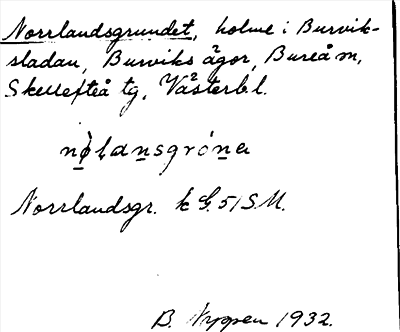 Norrlandsgrundet, holme i Burvik-
sladan, Burviks ägor, Bureå m,
Skellefteå tg, Västerb.l.
Norrlandsgr. k G.51 S.M.
B. Nyppen 1932.